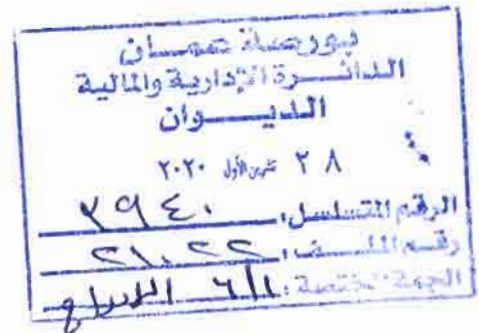 بورصة عمان
الدائرة الإدارية والمالية
الديوان
٢٨ تشرين الأول ٢٠٢٠
الرقم المتسلسل: ٣٩٤٠
رقم الملف: ٢١٠٢٢
الجهة المختصة: